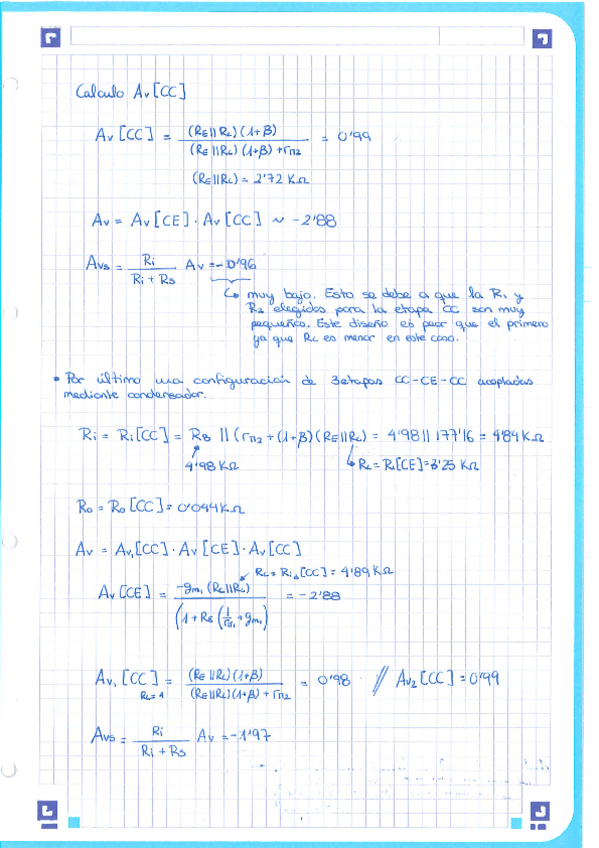 Calculo Av [CC]
Av [CC] = (RE || RL) (1+β) / (RE || RL) (1+β) + rπ2 = 0'99
(RE || RL) = 2'72 KΩ
Av = Av [CE] · Av [CC] ~ -2'88
Avs = Ri / Ri + Rs Av = -0'96
↳ muy bajo. Esto se debe a que la R1 y
R2 elegidos para la etapa CC son muy
pequeños. Este diseño es peor que el primero
ya que RL es menor en este caso.
• Por último una configuración de 3 etapas CC-CE-CC acopladas
mediante condensador.
Ri = Ri [CC] = RB || (rπ2 + (1+β) (RE || RL) = 4'98 || 177'16 = 4'84 KΩ
4'98 KΩ
↳ RL = Ri [CE] = 3'25 KΩ
Ro = Ro [CC] = 0'044 KΩ
Av = Av1 [CC] · Av [CE] · Av [CC]
RL = Ri [CC] = 4'89 KΩ
Av [CE] = -gm1 (RC || RL) / (1 + RS (1/rπ1 + gm1) = -2'88
Av1 [CC] = (RE || RL) (1+β) / (RE || RL) (1+β) + rπ2 = 0'98 // Av2 [CC] = 0'99
Avs = Ri / Ri + Rs Av = -1'97